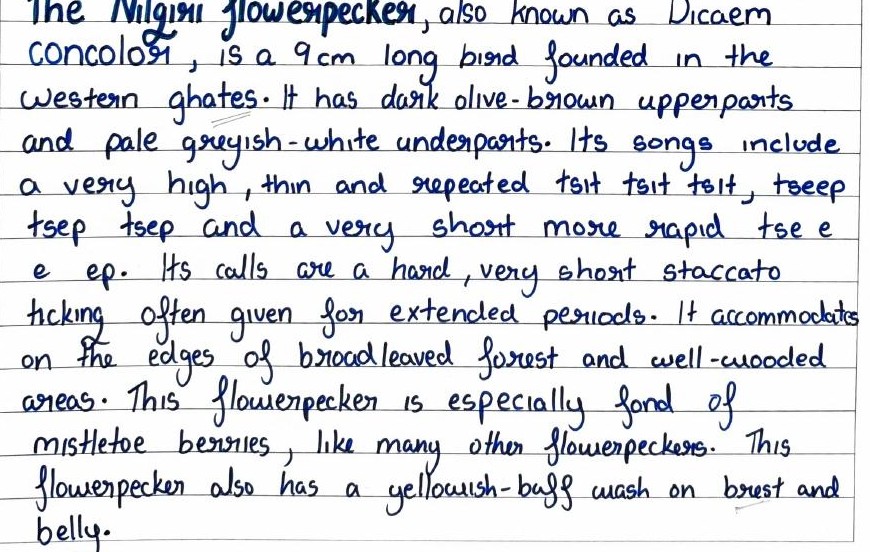 The Nilgiri flowerpecker, also known as Dicaem
concolor, is a 9cm long bird founded in the
western ghates. It has dark olive-brown upperparts
and pale greyish-white underparts. Its songs include
a very high, thin and repeated tsit tsit tsit, tseep
tsep tsep and a very short more rapid tse e
e ep. Its calls are a hard, very short staccato
ticking often given for extended periods. It accommodates
on the edges of broadleaved forest and well-wooded
areas. This flowerpecker is especially fond of
mistletoe berries, like many other flowerpeckers. This
flowerpecker also has a yellowish-buff wash on brest and
belly.